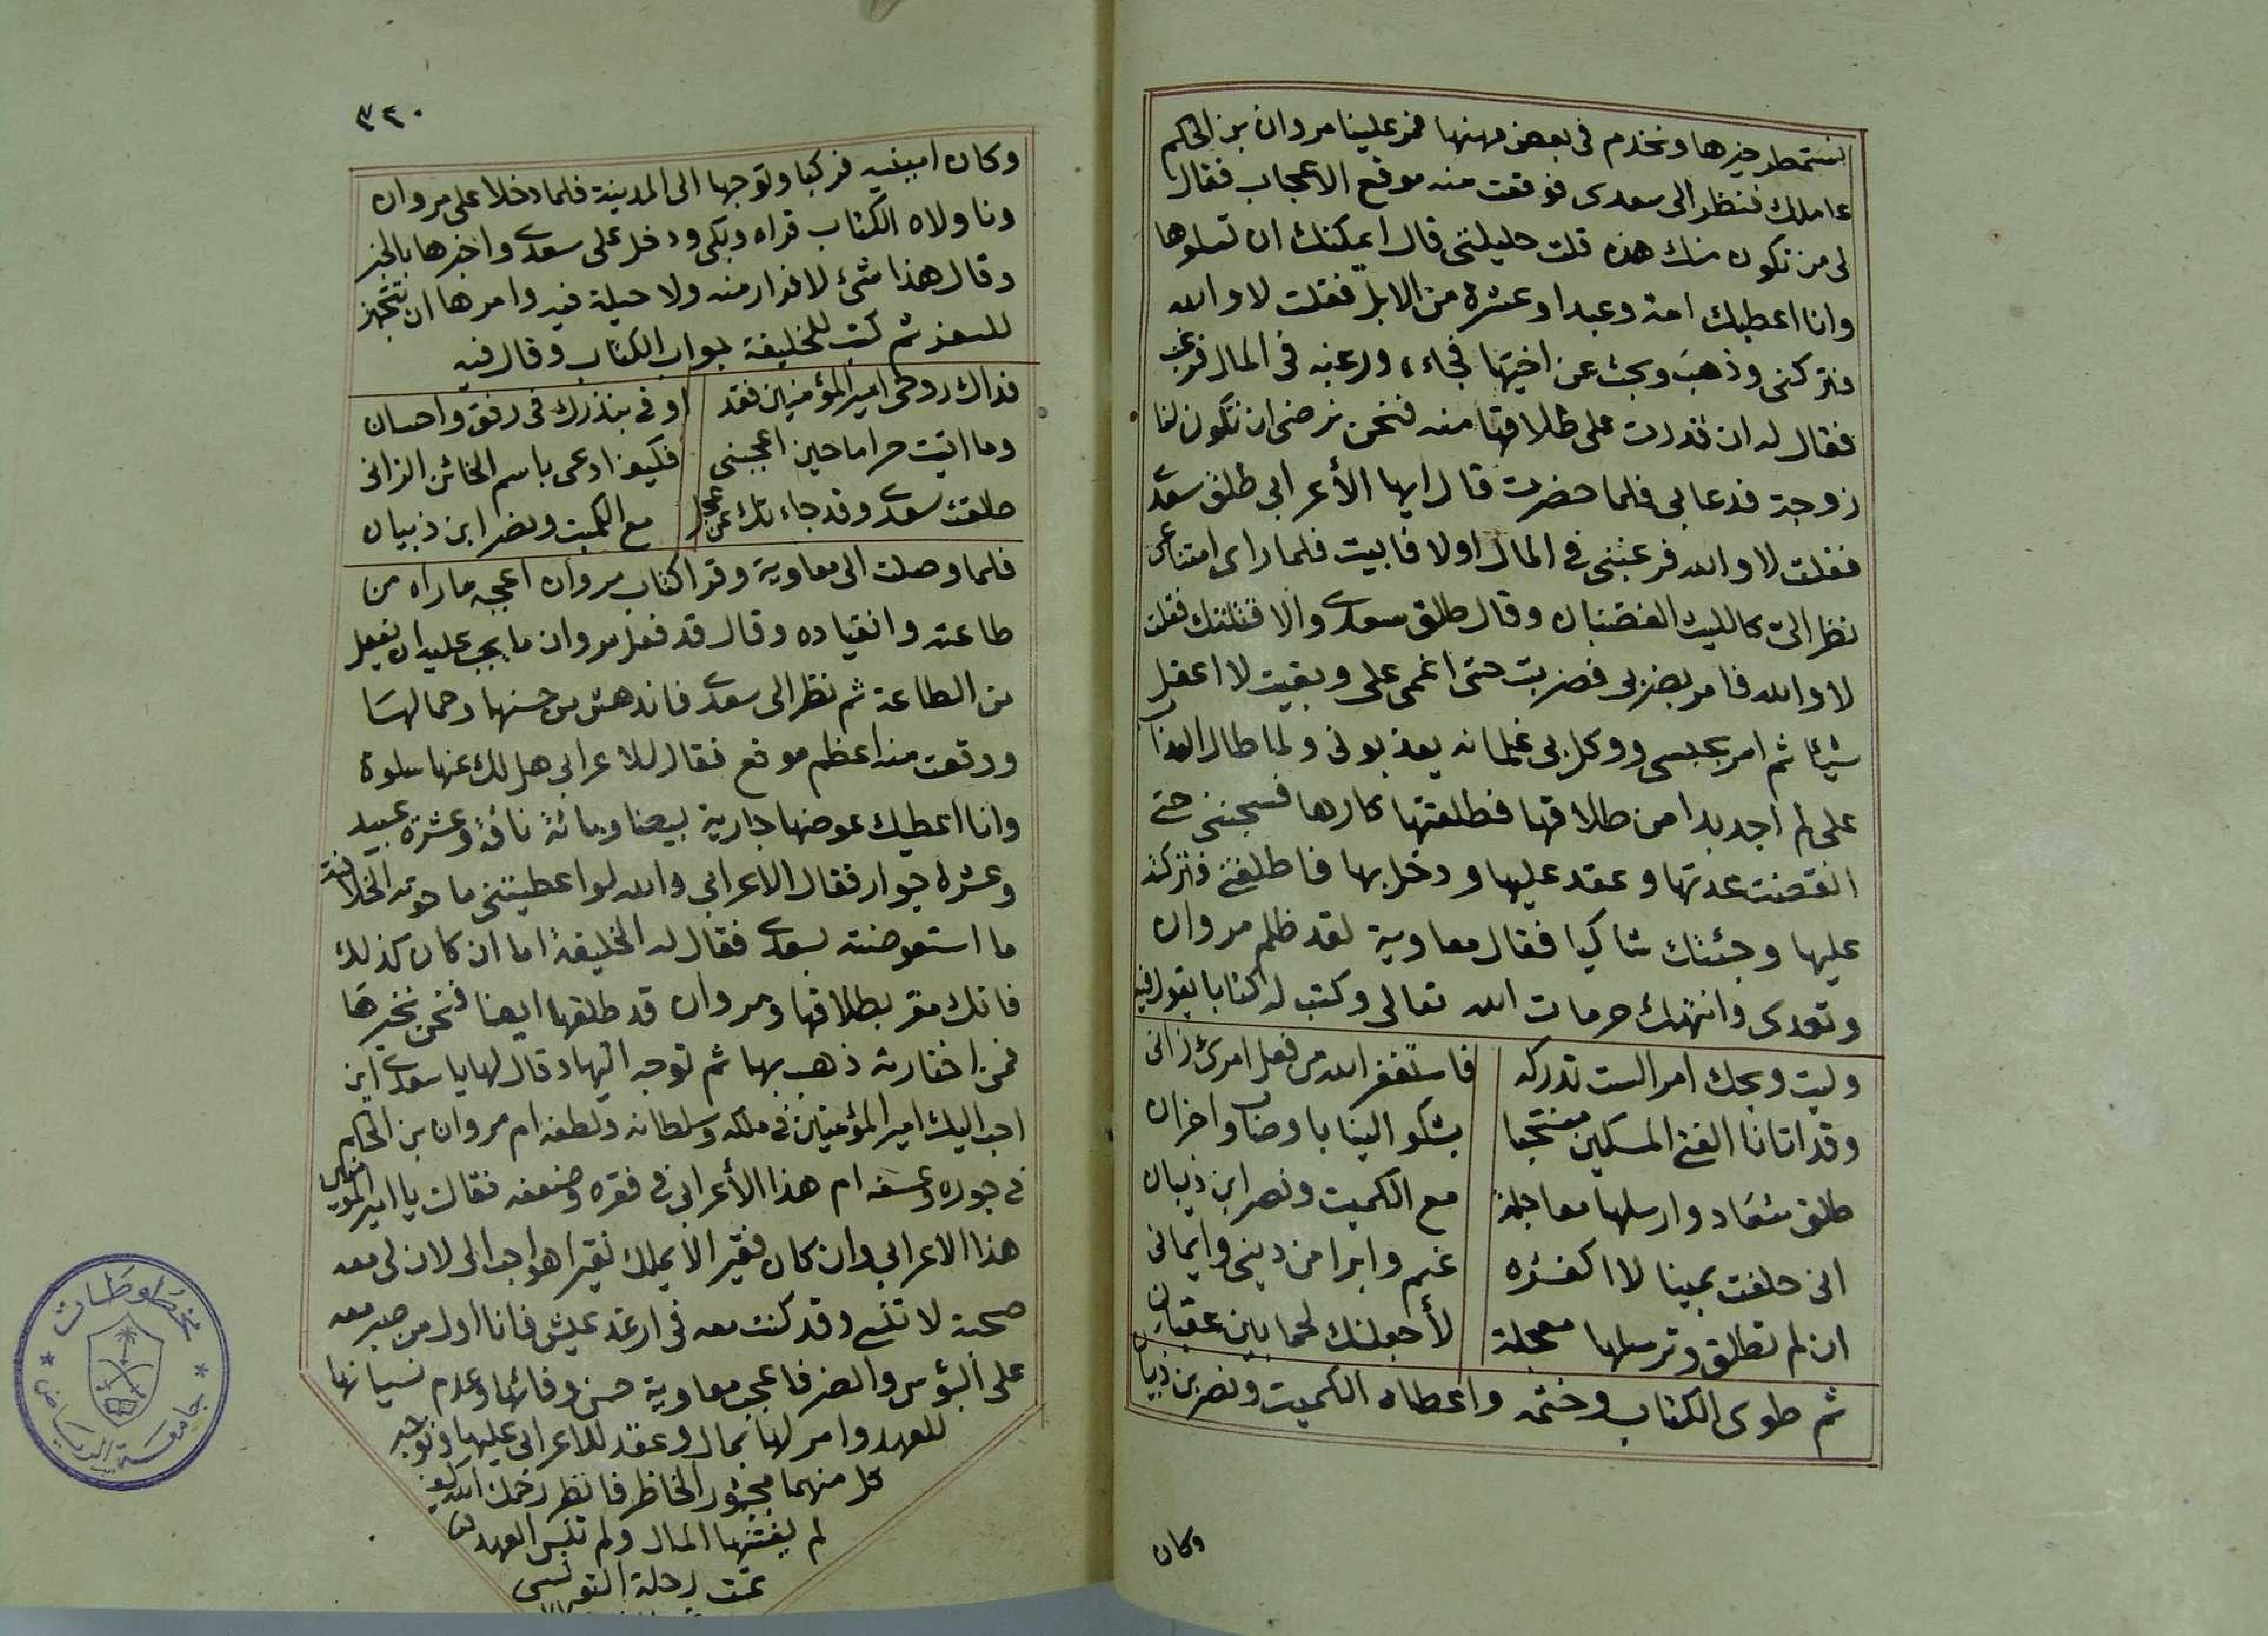 نستمطر خيرها ونخدم فى بعض مهنها فمر علينا مروان بن الحكم
عاملك فنظر الى سعدى فوقعت منه موقع الاعجاب فقال
لى من تكون منك هذه قلت حليلتى قال ايمكنك ان تسلوها
وانا اعطيك امة وعبدا وعشرة من الابل فقلت لا والله
فتركنى وذهب وبحث عن اخيتها فجاء ورغبه فى المال فرغب
فقال له ان قدرت على طلاقها منه فنحن نرضى ان تكون لنا
زوجة فدعا بى فلما حضرت قال ايها الأعرابى طلق سعدى
فقلت لا والله فرغبنى فى المال اولا فابيت فلما راى امتناعى
نظر الى كالليث الغضبان وقال طلق سعدى والا قتلتك فقلت
لا والله فامر بضربى فضربت حتى اغمى على وبقيت لا اعقل
شيئا ثم امر بحبسى ووكل بى غلمانه يعذبونى ولما طال العذاب
على لم اجد بدا من طلاقها فطلقتها كارها فسجننى حتى
انقضت عدتها وعقد عليها ودخل بها فاطلقنى فتركته
عليها وجئتك شاكيا فقال معاوية لقد ظلم مروان
وتعدى وانتهك حرمات الله تعالى وكتب له كتابا يقول فيه
وليت ويحك امرا لست تدركه فاستغفر الله من فعل امرئ زانى
وقد اتانا الفتى المسكين منتحبا يشكو الينا باوصاب واحزان
طلق سعاد وارسلها معاجلة مع الكميت ونصر ابن ذبيان
انى حلفت يمينا لا اكفره نعم وابرا من دينى وايمانى
ان لم تطلق وترسلها معجلة لأجعلنك لحما بين عقبان
ثم طوى الكتاب وختمه واعطاه الكميت ونصر بن ذبيان
وكان
٣٤٠
وكان امينيه فركبا وتوجها الى المدينة فلما دخلا على مروان
وناولاه الكتاب قراه وبكى ودخل على سعدى واخبرها بالخبر
وقال هذا شئ لا فرار منه ولا حيلة فيه وامرها ان تتجهز
للسفر ثم كتب للخليفة جواب الكتاب وقال فيه
فداك روحى امير المؤمنين فقد اوفى بنذرك فى رفق واحسان
وما اتيت حراما حين اعجبنى فكيف ادعى باسم الخائن الزانى
طلقت سعدى وقد جاءتك عن عجل مع الكميت ونصر ابن ذبيان
فلما وصلت الى معاوية وقرا كتاب مروان اعجبه ما راه من
طاعته وانقياده وقال قد فعل مروان ما يجب عليه ان يفعل
من الطاعة ثم نظر الى سعدى فاندهش من حسنها وجمالها
ووقعت منه اعظم موقع فقال للاعرابى هل لك عنها سلوة
وانا اعطيك عوضها جارية بيضا ومائة ناقة وعشرة عبيد
وعشرة جوار فقال الاعرابى والله لو اعطيتنى ما حوته الخلافة
ما استعوضته بسعدى فقال له الخليفة اما ان كان كذلك
فانك مقر بطلاقها ومروان قد طلقها ايضا فنحن نخيرها
فمن اختارته ذهب بها ثم توجه اليها وقال لها يا سعدى اين
احب اليك امير المؤمنين فى ملكه وسلطانه ولطفه ام مروان بن الحكم
فى جوره وعسفه ام هذا الأعرابى فى فقره وضعفه فقالت يا امير المؤمنين
هذا الاعرابى وان كان فقيرا لا يملك نقيرا هو احب الى لان لى معه
صحبة لا تنسى وقد كنت معه فى ارغد عيش فانا اول من صبر معه
على البؤس والضر فاعجب معاوية حسن وفائها وعدم نسيانها
للعهد وامر لها بمال وعقد للاعرابى عليها وتوجه
كل منهما مجبور الخاطر فانظر رحمك الله كيف
لم يفتنها المال ولم تنس العهد
تمت رحلة التونسى
مخطوطات
جامعة الرياض